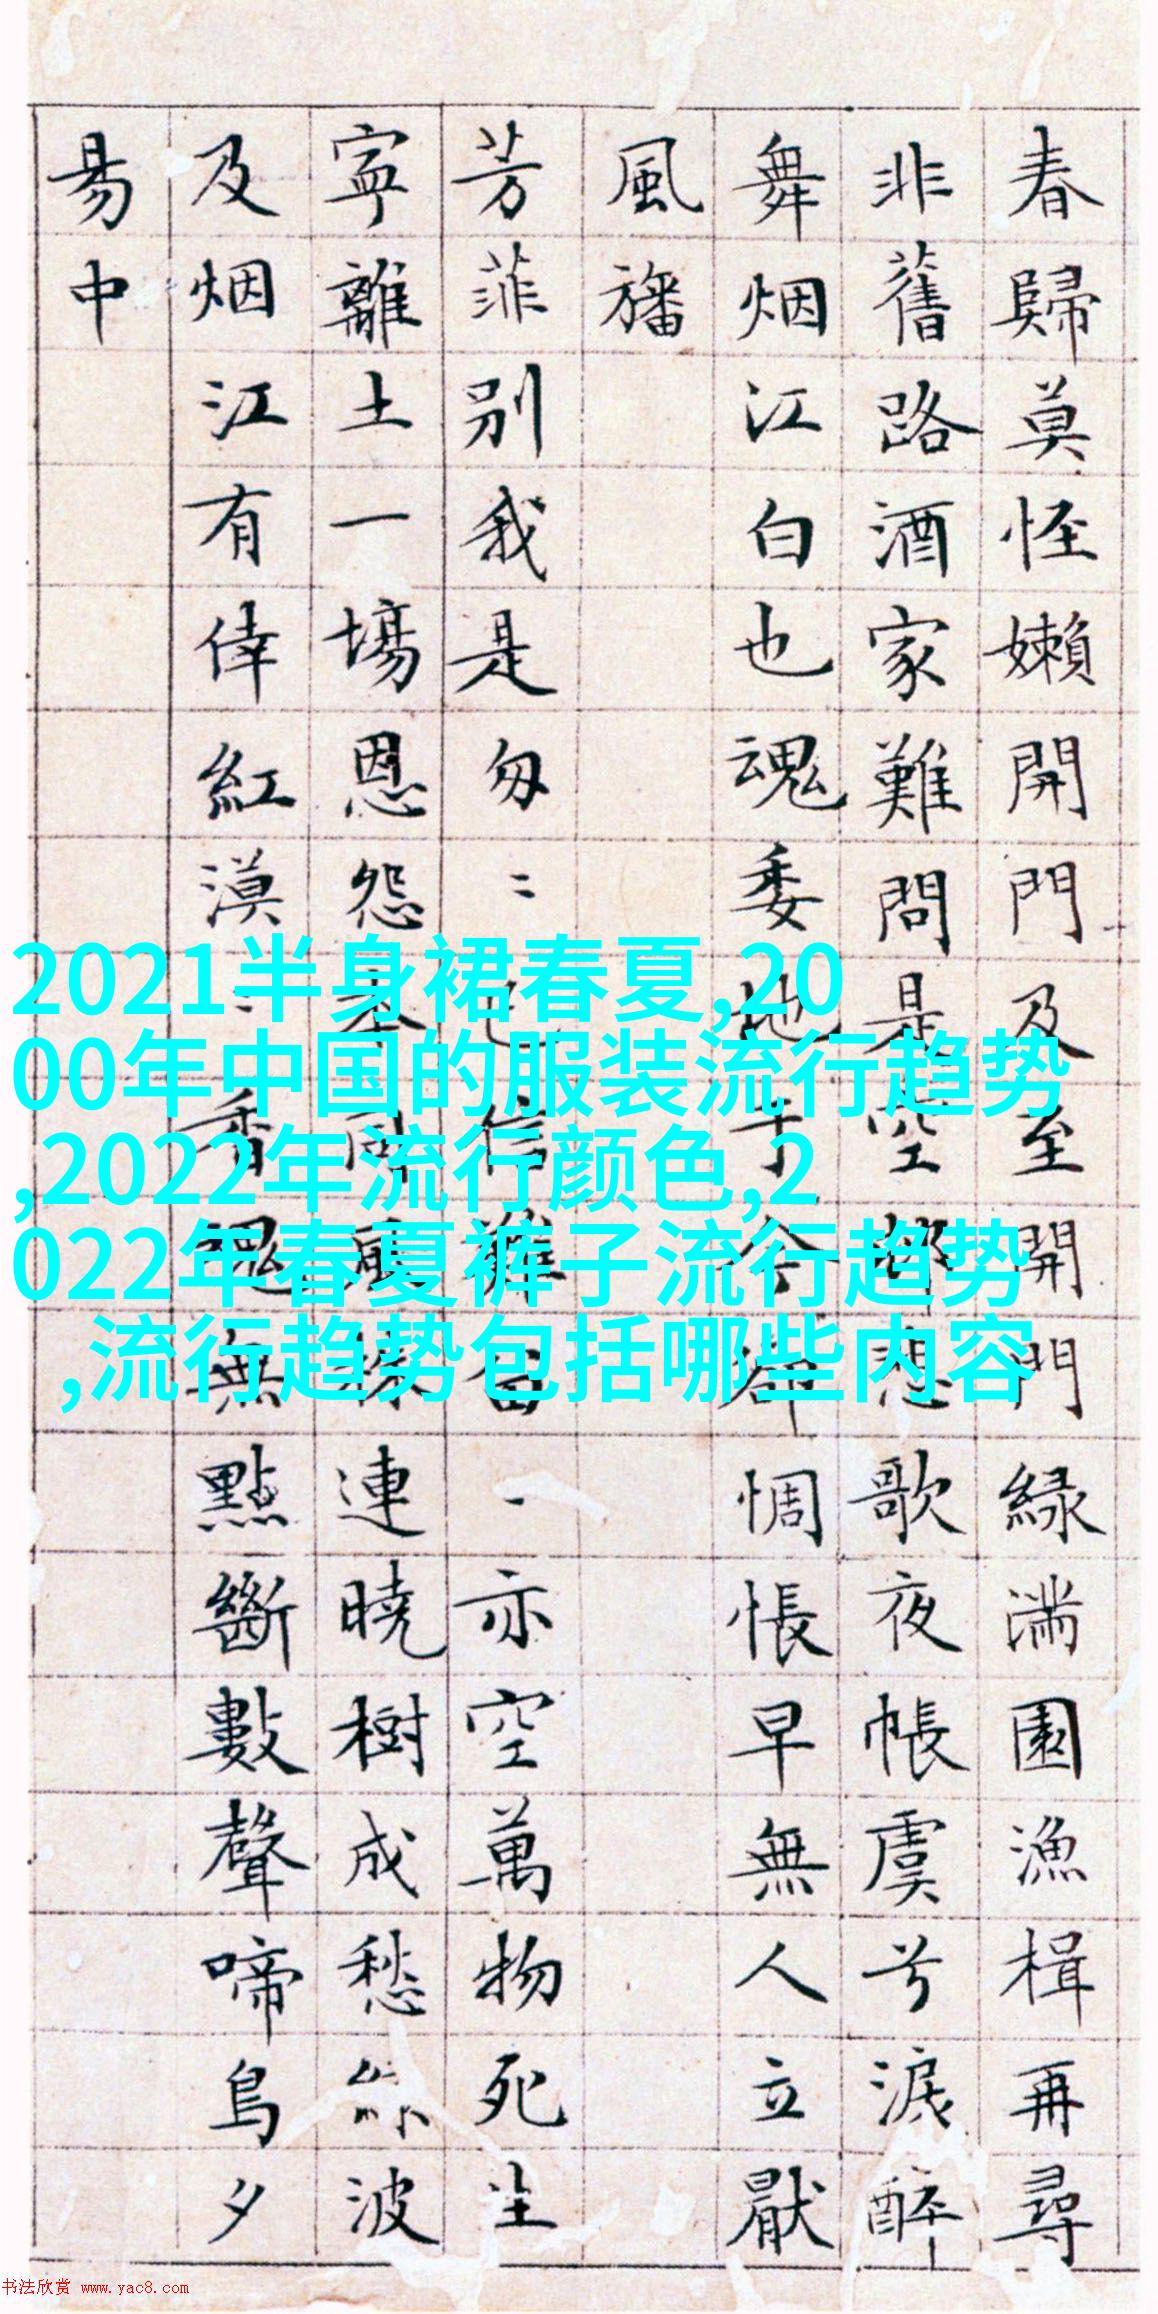 春歸莫怪嬾開門及至開門緑滿園漁楫再尋
非舊路酒家難問是空邨悲歌夜帳虞兮淚醉
舞烟江白也魂委地于今卻惆悵早無人立厭
風旛
芳菲別我是匆〻已信難留〻亦空萬物死生
寧離土一場恩怨本同風株連曉樹成愁絲波
及烟江有倖紅漠〻香魂無點斷數聲啼鳥夕
昜中
2021半身裙春夏,20
00年中国的服装流行趋势
,2022年流行颜色,2
022年春夏裤子流行趋势
,流行趋势包括哪些内容
书法欣赏 www.yac8.com